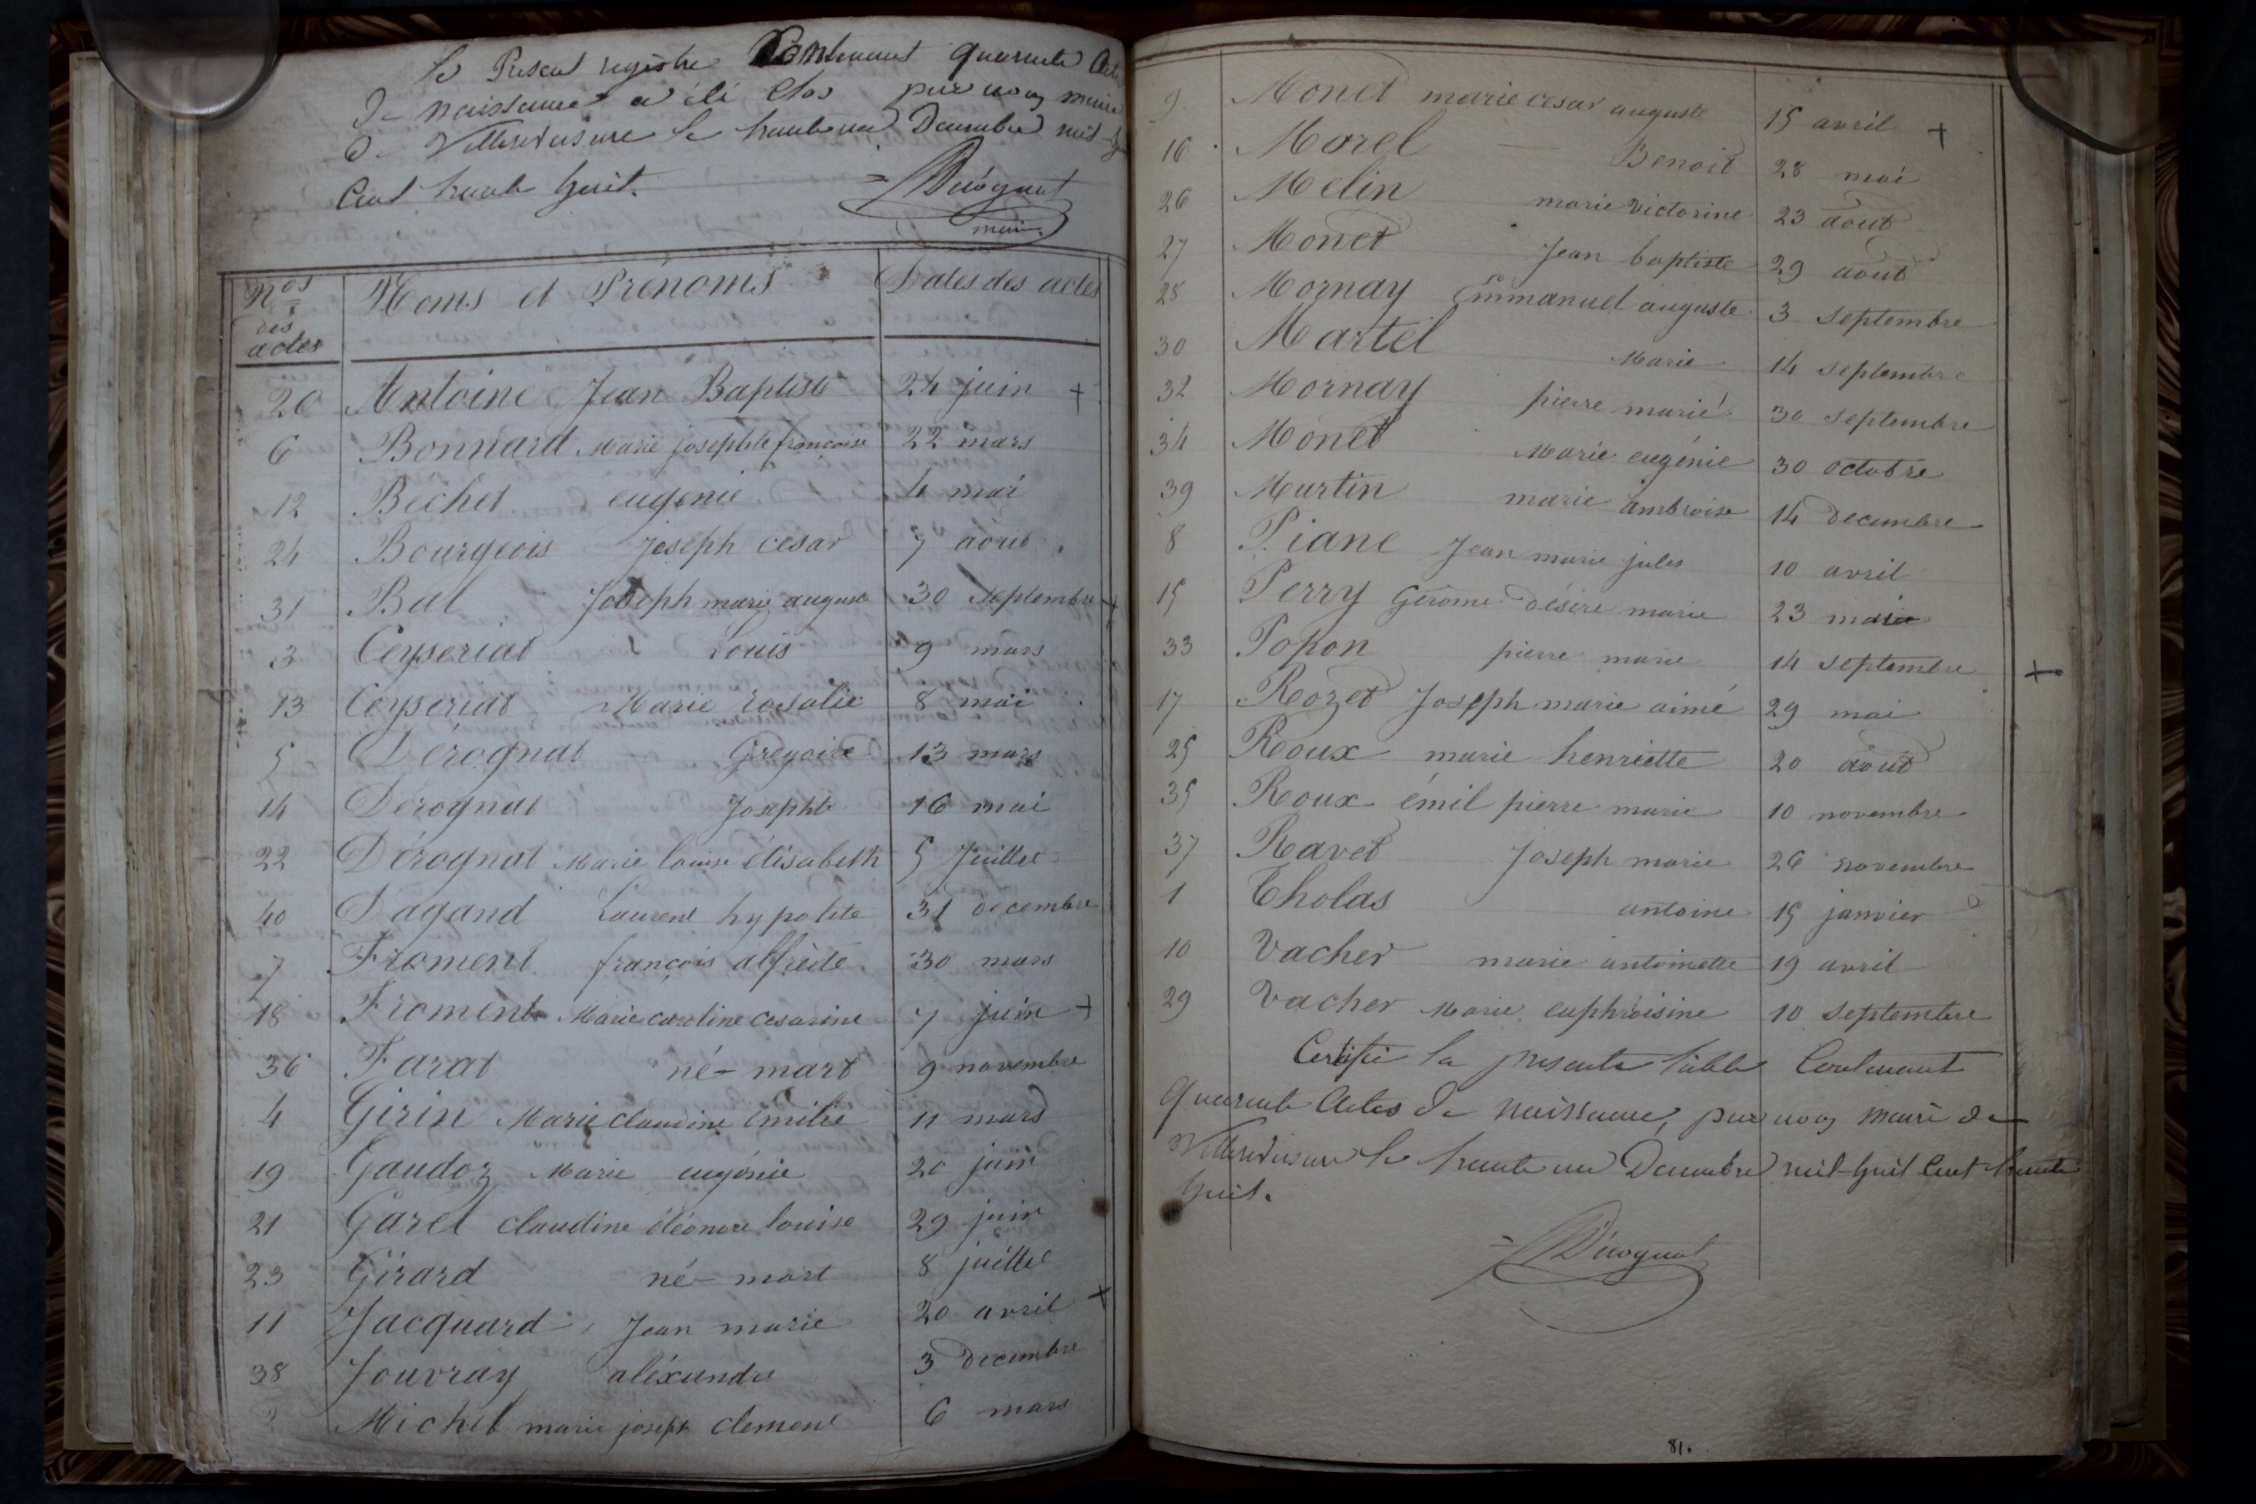 Le Présent registre Contenant quarante Actes
De naissance a été Clos par nous maire
De Villereversure le trente un Décembre mil
Cent trente huit.
Dérognat
maire
Nos des actes Noms et Prénoms Dates des actes
20 Antoine Jean Baptiste 24 juin +
6 Bonnard Marie josephte françoise 22 mars
12 Bechet eugenie 4 mai
24 Bourgeois Joseph cesar 7 aout
31 Bal Joseph marie auguste 30 septembre +
3 Ceyseriat Louis 9 mars
13 Ceyseriat Marie rosalie 8 mai
5 Dérognat Gregoire 13 mars
14 Dérognat Josephte 16 mai
22 Dérognat Marie louise élisabeth 5 Juillet
40 Dagand Laurent hypolite 31 decembre
7 Froment françois alfrède 30 mars
18 Froment Marie caroline cesarine 7 juin +
36 Farat né-mort 9 novembre
4 Girin Marie claudine émilie 11 mars
19 Gaudoz Marie eugénie 20 juin
21 Garel claudine éléonore louise 29 juin
23 Girard né-mort 8 juillet
11 Jacquard Jean marie 20 avril +
38 Jouvray aléxandre 3 decembre
2 Michel marie joseph clement 6 mars
9 Monet marie cesar auguste 15 avril +
16 Morel Benoit 28 mai
26 Melin marie victorine 23 aout
27 Monet Jean baptiste 29 aout
28 Mornay Emmanuel auguste 3 septembre
30 Martel Marie 14 septembre
32 Mornay pierre marié 30 septembre
34 Monet Marie eugénie 30 octobre
39 Martin marie ambroise 14 decembre
8 Piane Jean marie jules 10 avril
15 Perry Gérome désiré marie 23 mai
33 Popon pierre marie 14 septembre +
17 Rozet Joseph marie aimé 29 mai
25 Roux marie henriette 20 aout
35 Roux émil pierre marie 10 novembre
37 Ravet Joseph marie 26 novembre
1 Tholas antoine 15 janvier
10 Vacher marie antoinette 19 avril
29 Vacher Marie euphroisine 10 septembre
Certifié la présente table Contenant
quarante Actes de naissance, par nous maire de
Villereversure le trente un Décembre mil huit Cent trente
huit.
Dérognat
81.